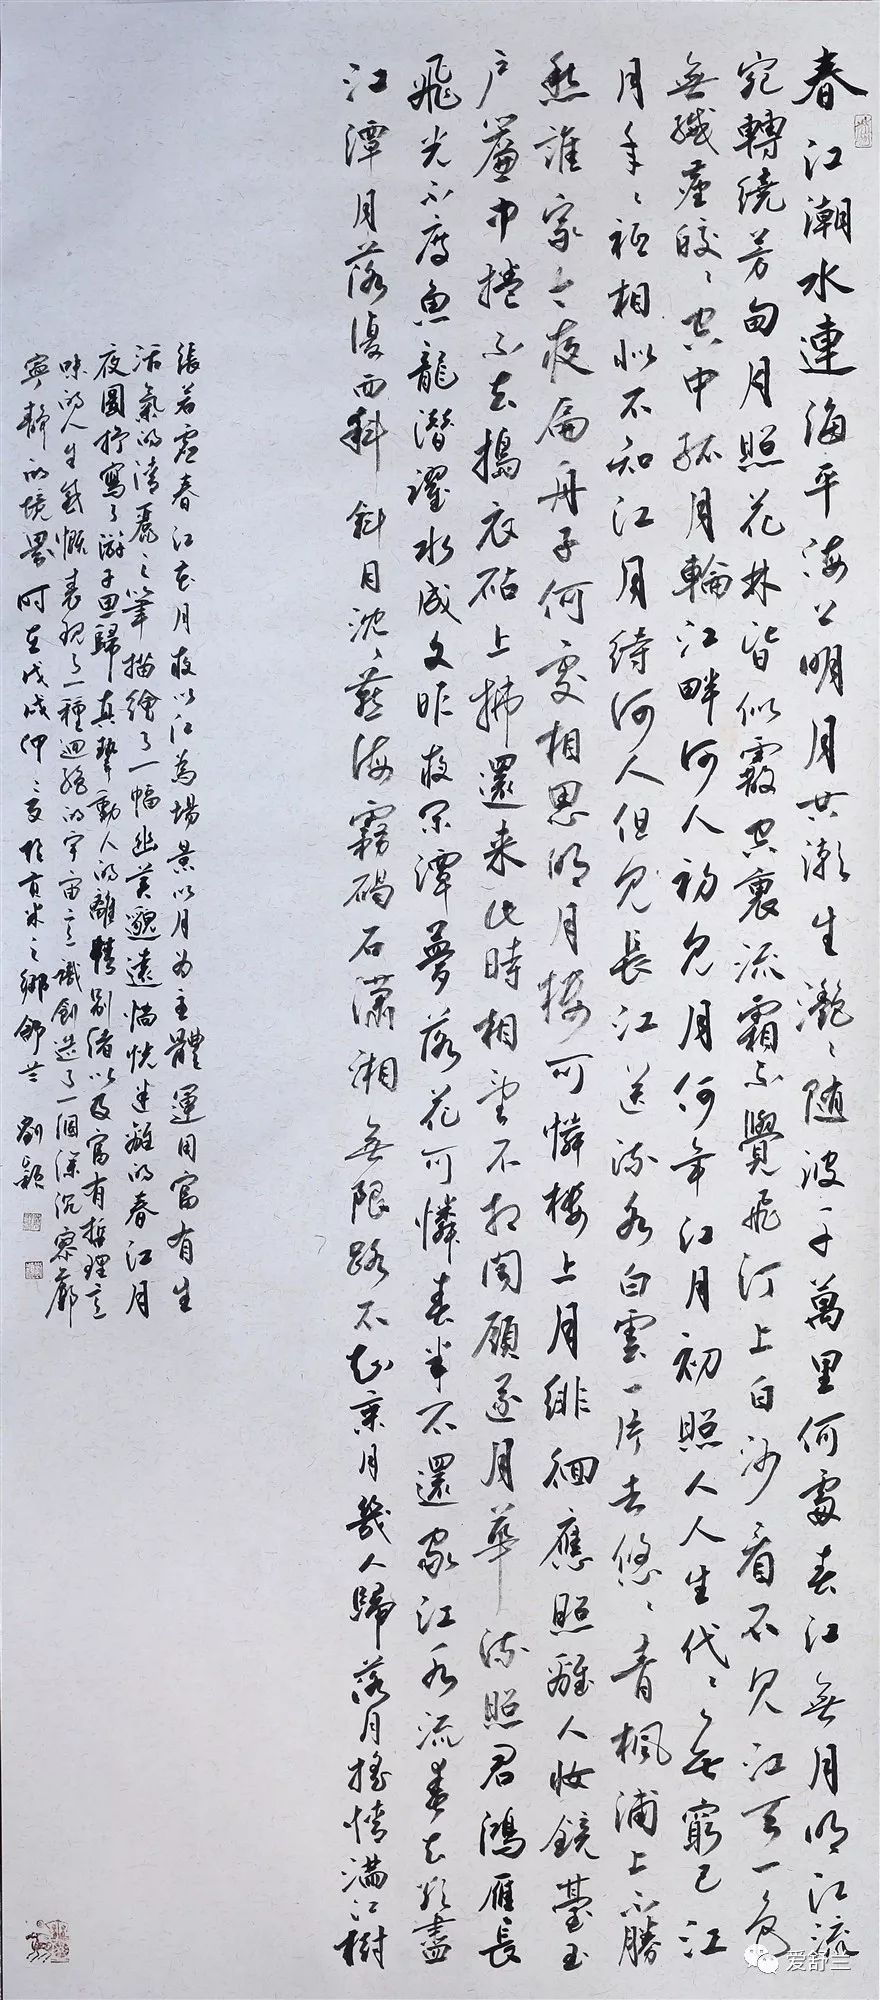 春江潮水連海平海上明月共潮生灩灩随波千萬里何處春江無月明江流
宛轉繞芳甸月照花林皆似霰空裏流霜不覺飛汀上白沙看不見江天一色
無纖塵皎皎空中孤月輪江畔何人初見月江月何年初照人人生代代無窮已江
月年年祗相似不知江月待何人但見長江送流水白雲一片去悠悠青楓浦上不勝
愁誰家今夜扁舟子何處相思明月樓可憐樓上月徘徊應照離人妝鏡臺玉
户簾中捲不去搗衣砧上拂還来此時相望不相聞願逐月華流照君鴻雁長
飛光不度魚龍潛躍水成文昨夜閑潭夢落花可憐春半不還家江水流春去欲盡
江潭月落復西斜斜月沈沈藏海霧碣石瀟湘無限路不知乘月幾人歸落月搖情滿江樹
張若虚春江花月夜以江為場景以月为主體運用富有生
活氣的清麗之筆描繪了一幅幽美邈遠惝恍迷離的春江月
夜圖抒寫了游子思歸真摯動人的離情别绪以及富有哲理意
味的人生感慨表現了一種迥絶的宇宙意識創造了一個深沉寥廓
寧靜的境界時在戊戌仲夏於百米之鄉舒蘭劉穎
爱舒兰